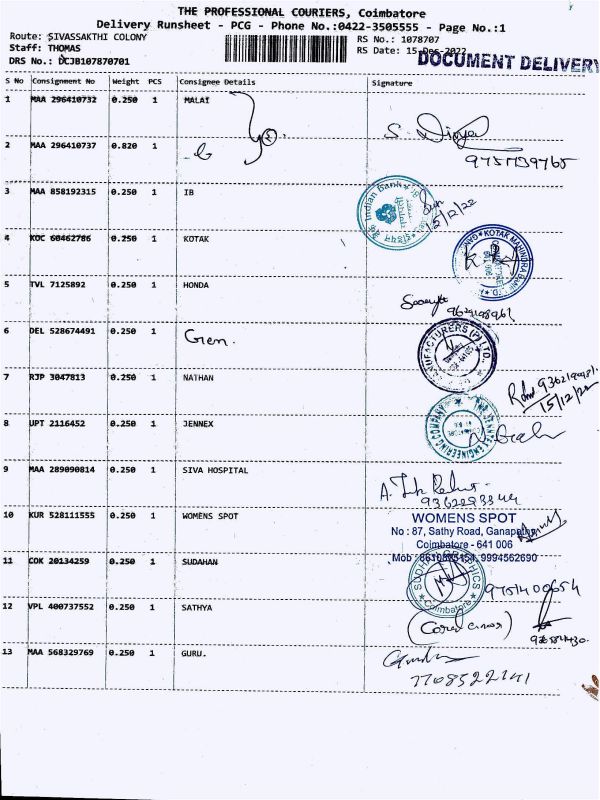 THE PROFESSIONAL COURIERS, Coimbatore
Delivery Runsheet - PCG - Phone No.:0422-3505555 - Page No.:1
Route: SIVASSAKTHI COLONY
RS No.: 1078707
Staff: THOMAS
RS Date: 15-Dec-2022
DRS No.: DCJB107870701
DOCUMENT DELIVERY
S No Consignment No Weight PCS Consignee Details Signature
1 MAA 296410732 0.250 1 MALAI
2 MAA 296410737 0.820 1
9751139765
3 MAA 858192315 0.250 1 IB
Indian Bank
15/12/22
4 KOC 60462786 0.250 1 KOTAK
KOTAK MAHINDRA BANK LTD.
5 TVL 7125892 0.250 1 HONDA
6 DEL 528674491 0.250 1 Gem.
7 RJP 3047813 0.250 1 NATHAN
15/12/22
8 UPT 2116452 0.250 1 JENNEX
9 MAA 289090814 0.250 1 SIVA HOSPITAL
10 KUR 528111555 0.250 1 WOMENS SPOT
WOMENS SPOT
No : 87, Sathy Road, Ganapathy
Coimbatore - 641 006
9994562690
11 COK 20134259 0.250 1 SUDAHAN
Coimbatore
9751400654
12 VPL 400737552 0.250 1 SATHYA
13 MAA 568329769 0.250 1 GURU.
7708522141